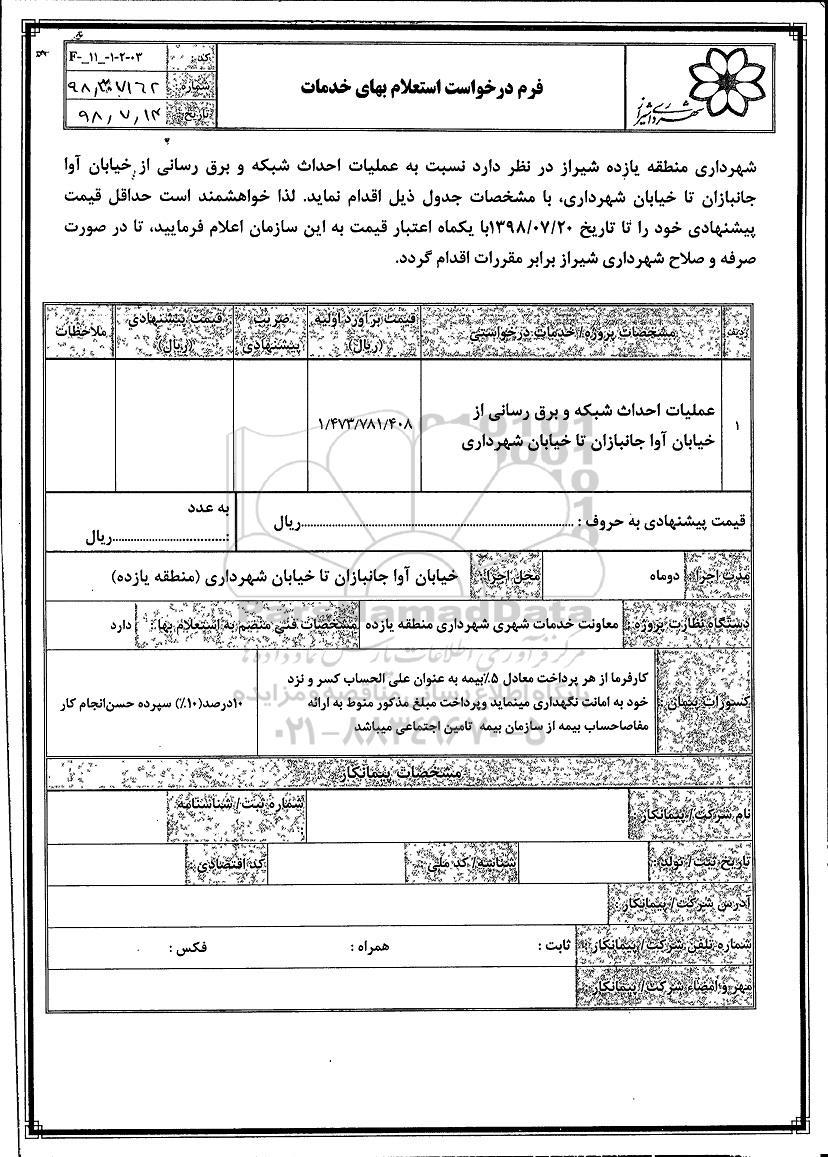 کد: F-_11_-1-2-03
شماره:
تاریخ: ۹۸/۷/۱۴
فرم درخواست استعلام بهای خدمات
شهرداری شیراز
شهرداری منطقه یازده شیراز در نظر دارد نسبت به عملیات احداث شبکه و برق رسانی از خیابان آوا
جانبازان تا خیابان شهرداری، با مشخصات جدول ذیل اقدام نماید. لذا خواهشمند است حداقل قیمت
پیشنهادی خود را تا تاریخ ۱۳۹۸/۰۷/۲۰با یکماه اعتبار قیمت به این سازمان اعلام فرمایید، تا در صورت
صرفه و صلاح شهرداری شیراز برابر مقررات اقدام گردد.
ردیف
مشخصات پروژه/ خدمات درخواستی
قیمت برآورد اولیه
(ریال)
ضریب
پیشنهادی
قیمت پیشنهادی
(ریال)
ملاحظات
۱
عملیات احداث شبکه و برق رسانی از
خیابان آوا جانبازان تا خیابان شهرداری
۱/۴۷۳/۷۸۱/۴۰۸
قیمت پیشنهادی به حروف : ......................................ریال
به عدد
:................................ریال
مدت اجرا: دوماه محل اجرا: خیابان آوا جانبازان تا خیابان شهرداری (منطقه یازده)
دستگاه نظارت پروژه : معاونت خدمات شهری شهرداری منطقه یازده مشخصات فنی منضم به استعلام بها : دارد
کسورات پیمان :
کارفرما از هر پرداخت معادل ۵٪بیمه به عنوان علی الحساب کسر و نزد
خود به امانت نگهداری مینماید وپرداخت مبلغ مذکور منوط به ارائه
مفاصاحساب بیمه از سازمان بیمه تامین اجتماعی میباشد
۱۰درصد(۱۰٪) سپرده حسن‌انجام کار
مشخصات پیمانکار
نام شرکت/ پیمانکار شماره ثبت/ شناسنامه
تاریخ ثبت/ تولد : شناسه/ کد ملی : کد اقتصادی :
آدرس شرکت/ پیمانکار :
شماره تلفن شرکت/ پیمانکار : ثابت : همراه : فکس :
مهر و امضاء شرکت/ پیمانکار :